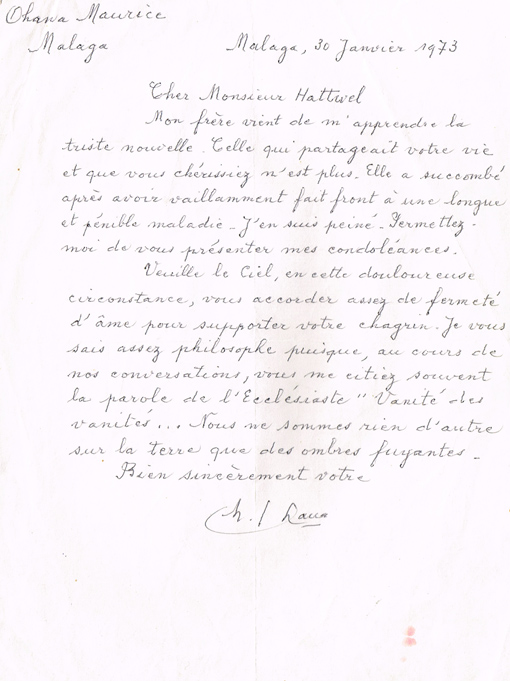 Ohana Maurice
Malaga
Malaga, 30 Janvier 1973
Cher Monsieur Hattwel
Mon frère vient de m'apprendre la
triste nouvelle. Celle qui partageait votre vie
et que vous chérissiez n'est plus. Elle a succombé
après avoir vaillamment fait front à une longue
et pénible maladie. J'en suis peiné. Permettez-
moi de vous présenter mes condoléances.
Veuille le Ciel, en cette douloureuse
circonstance, vous accorder assez de fermeté
d'âme pour supporter votre chagrin. Je vous
sais assez philosophe puisque, au cours de
nos conversations, vous me citiez souvent
la parole de l'Ecclésiaste " Vanité des
vanités... Nous ne sommes rien d'autre
sur la terre que des ombres fuyantes.
Bien sincèrement votre